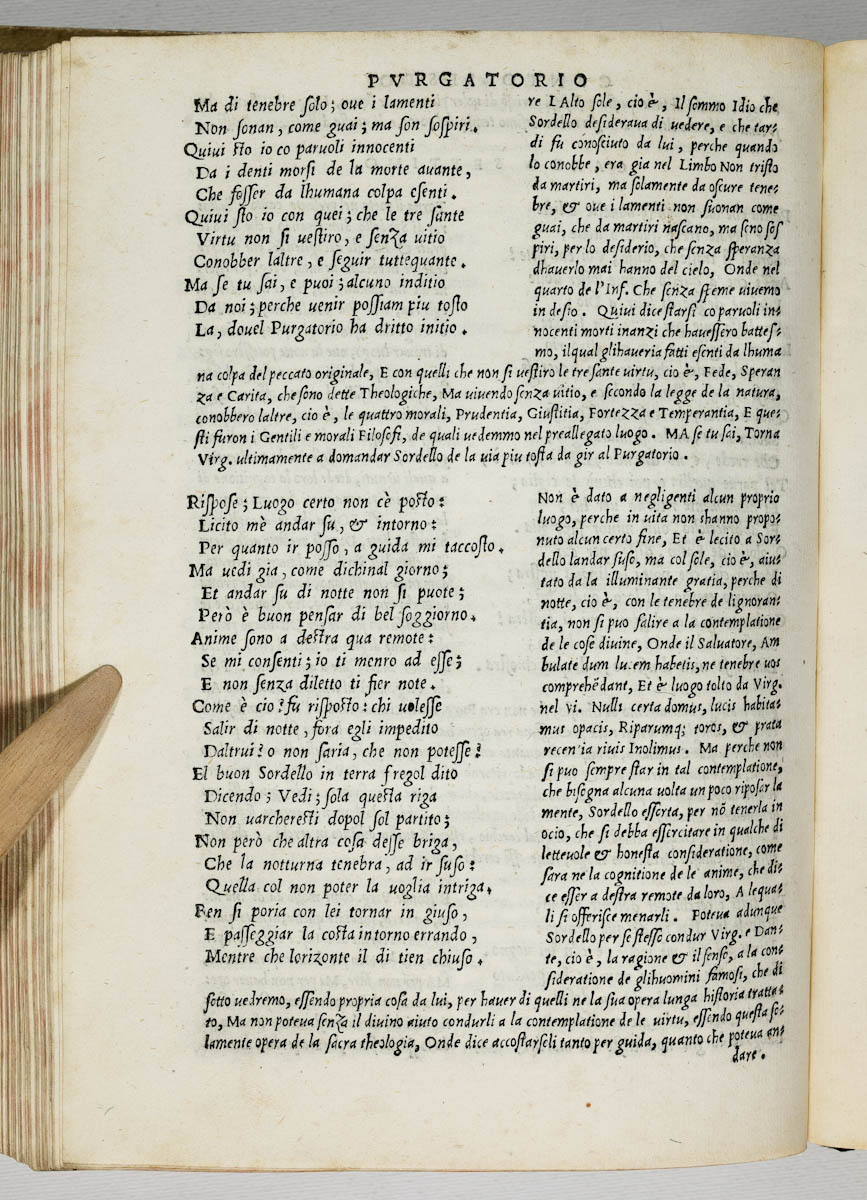 PVRGATORIO
Ma di tenebre solo; oue i lamenti
Non sonan, come guai; ma son sospiri.
Quiui sto io co paruoli innocenti
Da i denti morsi de la morte auante,
Che fosser da lhumana colpa esenti.
Quiui sto io con quei; che le tre sante
Virtu non si uestiro, e senza uitio
Conobber laltre, e seguir tuttequante.
Ma se tu sai, e puoi; alcuno inditio
Da noi; perche uenir possiam piu tosto
La, douel Purgatorio ha dritto initio.
re l Alto sole, cio è, Il sommo Idio che
Sordello desideraua di uedere, e che tar-
di fu conosciuto da lui, perche quando
lo conobbe, era gia nel Limbo Non tristo
da martiri, ma solamente da oscure tene-
bre, & oue i lamenti non suonan come
guai, che da martiri nascano, ma seno sos
piri, per lo desiderio, che senza speranza
dhauerlo mai hanno del cielo, Onde nel
quarto de l'Inf. Che senza speme uiuemo
in desio. Quiui dice starsi co paruoli in-
nocenti morti inanzi che hauessero battes-
mo, il qual glihaueria fatti esenti da lhuma
na colpa del peccato originale, E con quelli che non si uestiro le tre sante uirtu, cio è, Fede, Speran
za e Carita, che sono dette Theologiche, Ma uiuendo senza uitio, e secondo la legge de la natura,
conobbero laltre, cio è, le quattro morali, Prudentia, Giustitia, Fortezza e Temperantia, E que-
sti furon i Gentili e morali Filosofi, de quali uedemmo nel preallegato luogo. MA se tu sai, Torna
Virg. ultimamente a domandar Sordello de la uia piu tosta da gir al Purgatorio.
Rispose; Luogo certo non cè posto:
Licito mè andar su, & intorno:
Per quanto ir posso, a guida mi taccosto.
Ma uedi gia, come dichinal giorno;
Et andar su di notte non si puote;
Però è buon pensar di bel soggiorno.
Anime sono a destra qua remote:
Se mi consenti; io ti menro ad esse;
E non senza diletto ti fier note.
Come è cio? fu risposto: chi uolesse
Salir di notte, fora egli impedito
Daltrui? o non saria, che non potesse?
El buon Sordello in terra fregol dito
Dicendo; Vedi; sola questa riga
Non uarcheresti dopol sol partito;
Non però che altra cosa desse briga,
Che la notturna tenebra, ad ir suso:
Quella col non poter la uoglia intriga.
Ben si poria con lei tornar in giuso,
E passeggiar la costa intorno errando,
Mentre che lorizonte il di tien chiuso.
Non è dato a negligenti alcun proprio
luogo, perche in uita non shanno propo-
nuto alcun certo fine, Et è lecito a Sor-
dello landar suso, ma col sole, cio è, aiu-
tato da la illuminante gratia, perche di
notte, cio è, con le tenebre de lignoran-
tia, non si puo salire a la contemplatione
de le cose diuine, Onde il Saluatore, Am
bulate dum lucem habetis, ne tenebre uos
comprehēdant, Et è luogo tolto da Virg.
nel vi. Nulli certa domus, lucis habita-
mus opacis, Riparumq; toros, & prata
recentia riuis Inolimus. Ma perche non
si puo sempre star in tal contemplatione,
che bisogna alcuna uolta un poco riposar la
mente, Sordello esserta, per nō tenerla in
ocio, che si debba essercitare in qualche di
letteuole & honesta consideratione, come
sara ne la cognitione de le anime, che di-
ce esser a destra remote da loro, A lequa-
li si offerisce menarli. Poteua adunque
Sordello per se stesso condur Virg. e Dan-
te, cio è, la ragione & il senso, a la con-
sideratione de glihuomini famosi, che di
sotto uedremo, essendo propria cosa da lui, per hauer di quelli ne la sua opera lunga historia tratta-
to, Ma non poteua senza il diuino aiuto condurli a la contemplatione de le uirtu, essendo questa so-
lamente opera de la sacra theologia, Onde dice accostarseli tanto per guida, quanto che poteua an-
dare.